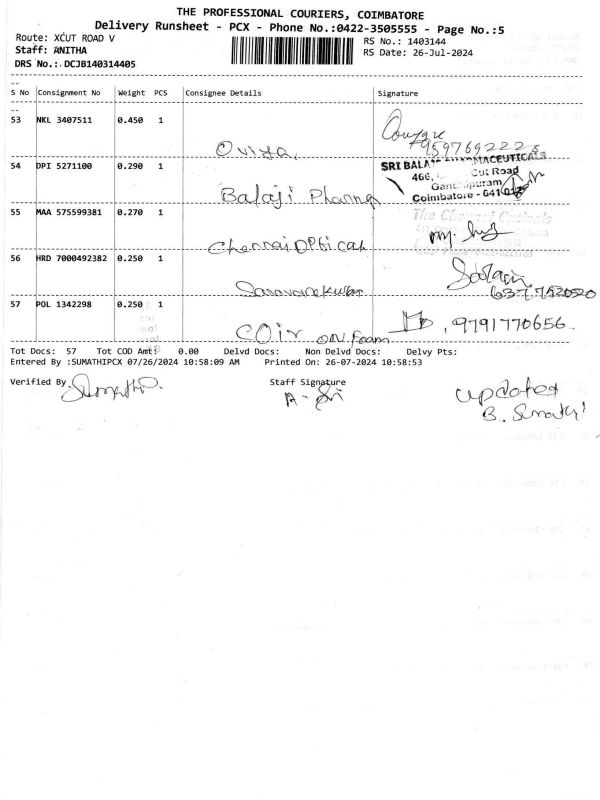 THE PROFESSIONAL COURIERS, COIMBATORE
Delivery Runsheet - PCX - Phone No.:0422-3505555 - Page No.:5
Route: XCUT ROAD V
RS No.: 1403144
Staff: ANITHA
RS Date: 26-Jul-2024
DRS No.: DCJB140314405
S No Consignment No Weight PCS Consignee Details Signature
53 NKL 3407511 0.450 1
9597692228
Oviya,
54 DPI 5271100 0.290 1
SRI BALAJI PHARMACEUTICALS
466, Cut Road
Gandhipuram
Coimbatore - 641012
Balaji Pharma
55 MAA 575599381 0.270 1
The Chennai Opticals
Chennai Optical
56 HRD 7000492382 0.250 1
637.752020
Saravanakumar
57 POL 1342298 0.250 1
9791770656
Coir on Foam
Tot Docs: 57 Tot COD Amt: 0.00 Delvd Docs: Non Delvd Docs: Delvy Pts:
Entered By :SUMATHIPCX 07/26/2024 10:58:09 AM Printed On: 26-07-2024 10:58:53
Verified By
Staff Signature
updated
B. Sumathi